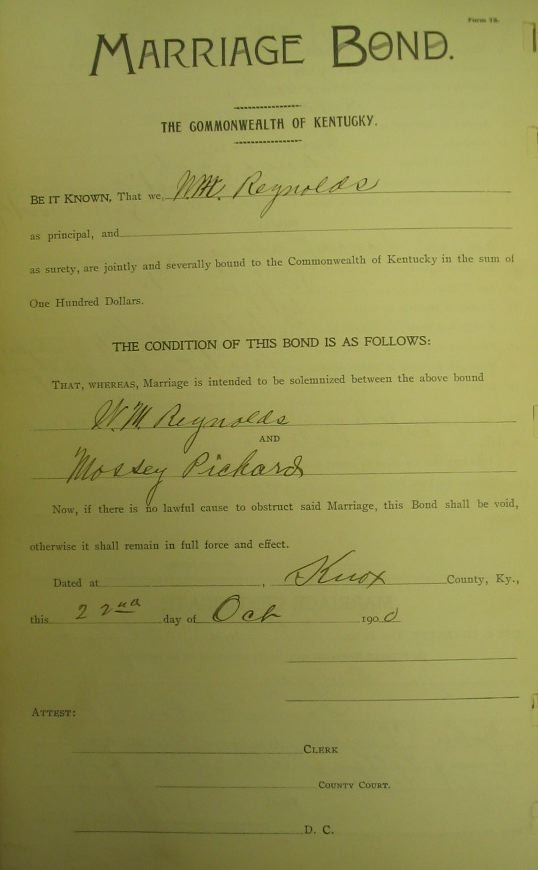 Form 78.
MARRIAGE BOND.
THE COMMONWEALTH OF KENTUCKY.
BE IT KNOWN, That we, WM. Reynolds
as principal, and
as surety, are jointly and severally bound to the Commonwealth of Kentucky in the sum of
One Hundred Dollars.
THE CONDITION OF THIS BOND IS AS FOLLOWS:
THAT, WHEREAS, Marriage is intended to be solemnized between the above bound
W. M. Reynolds
AND
Mossey Pickard
Now, if there is no lawful cause to obstruct said Marriage, this Bond shall be void,
otherwise it shall remain in full force and effect.
Dated at , Knox County, Ky.,
this 22nd day of Oct 1900
ATTEST:
CLERK
COUNTY COURT.
D. C.